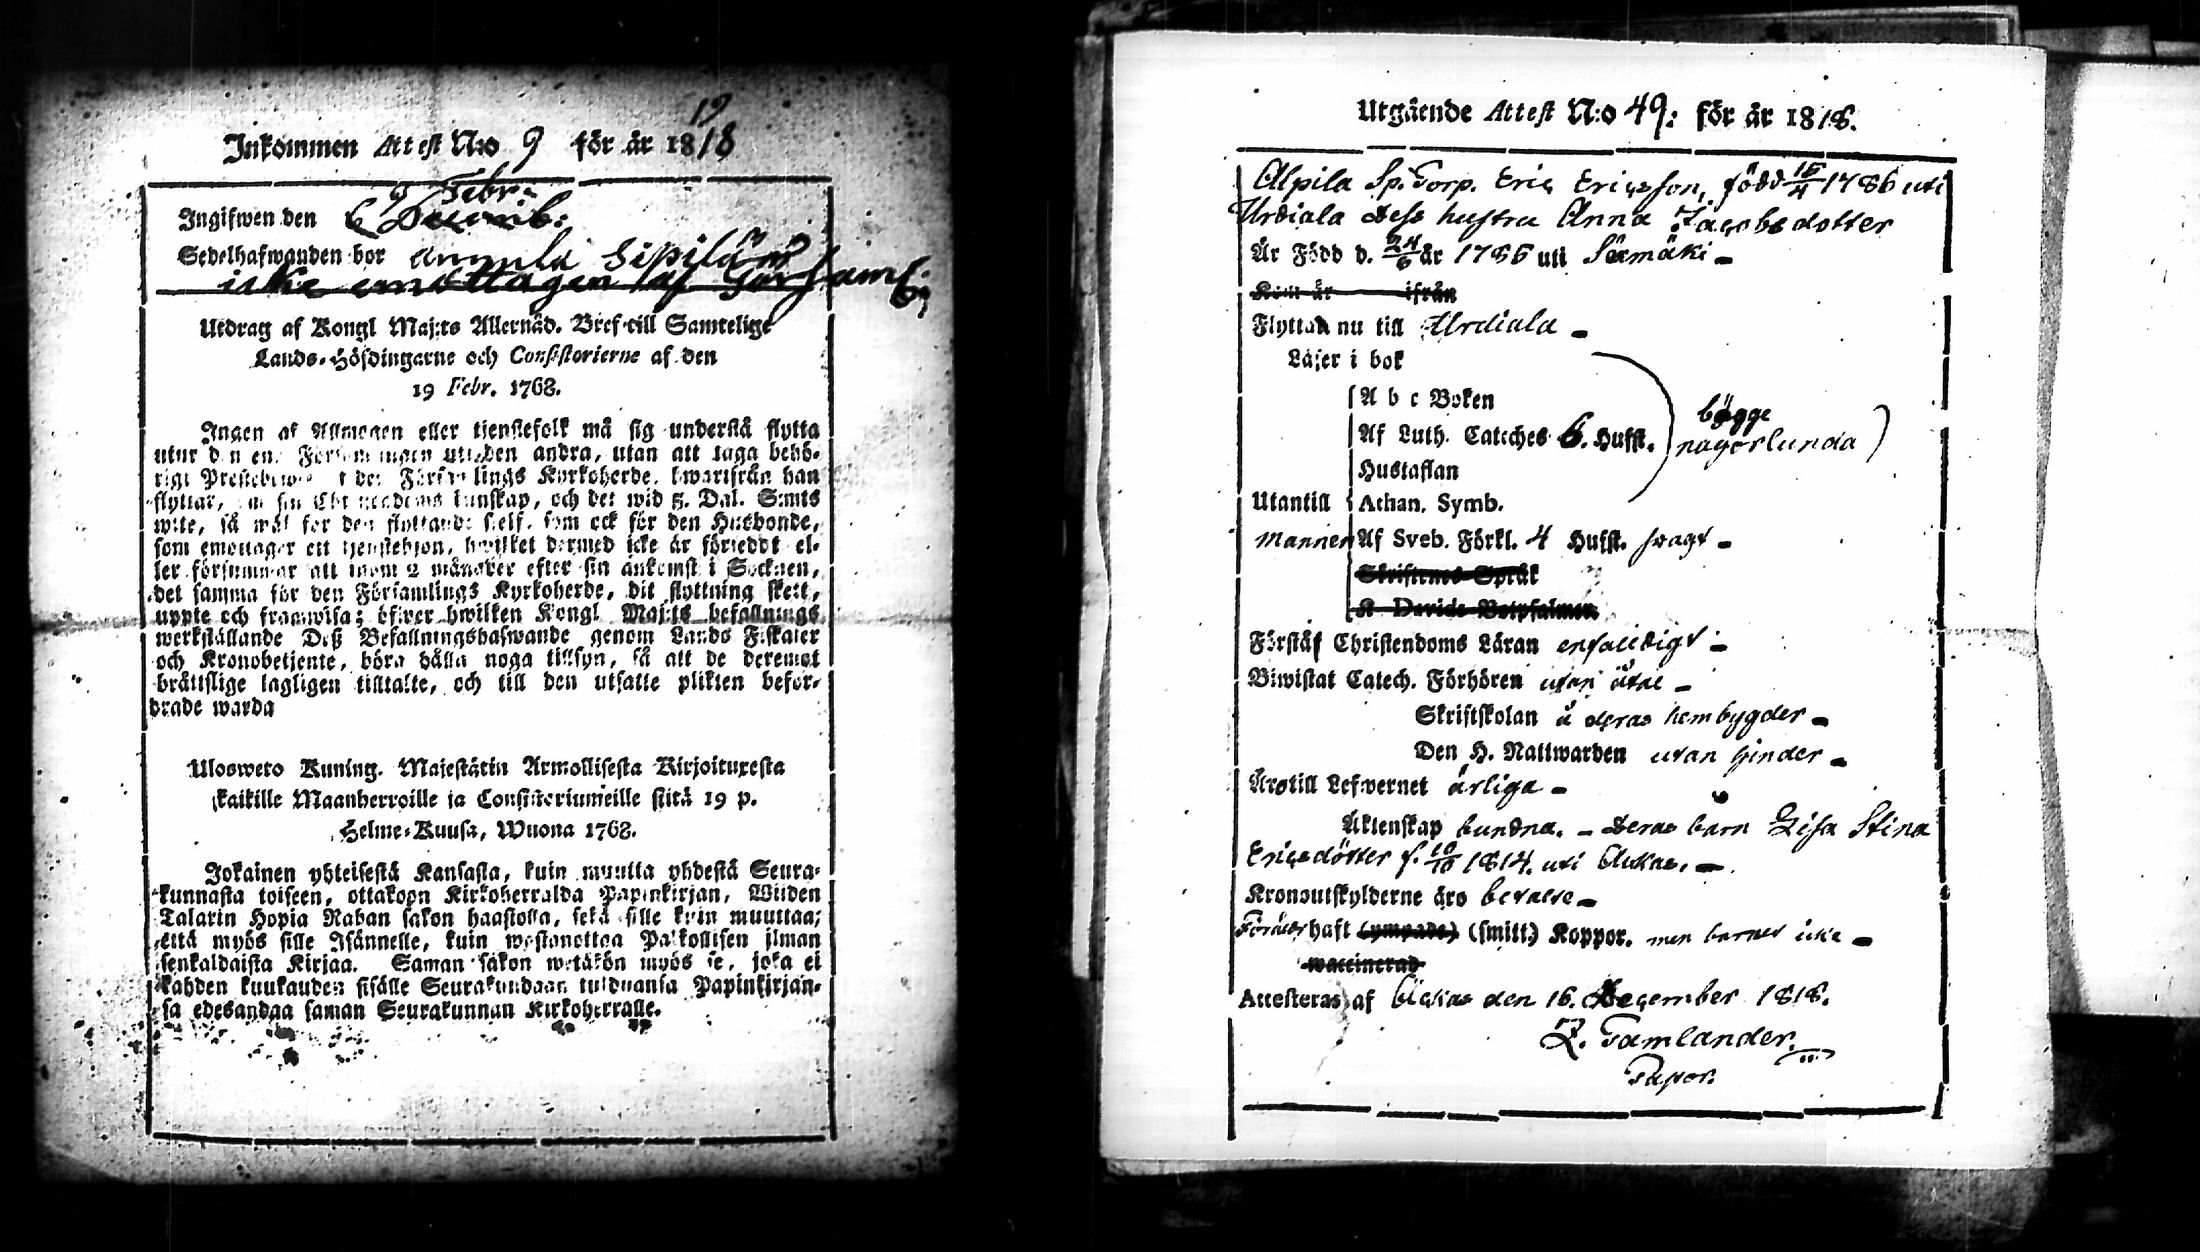 19
Inkommen Attest N:o 9 för år 1818
9 Febr:
Ingifwen den 6 Decemb:
Sedelhafwanden bor Sipilä
icke emottagen af Församl:
Utdrag af Kongl Maj:ts Allernåd. Bref till Samtelige
Lands-Höfdingarne och Consistorierne af den
19 Febr. 1768.
Ingen af Allmogen eller tjenstefolk må sig understå flytta
utur den ena Församlingen uti den andra, utan att taga behö-
rigt Prestebewis af den Församlings Kyrkoherde, hwarifrån han
flyttar, om sin Christendoms kunskap, och det wid 5. Dal. S:mts
wite, så wäl för den flyttande sjelf, som ock för den Husbonde,
som emottager ett tjenstehjon, hwilket dermed icke är försedt el-
ler försummar att inom 2 månader efter sin ankomst i Socknen,
det samma för den Församlings Kyrkoherde, dit flyttning skett,
uppte och framwisa; öfwer hwilken Kongl Maj:ts befallnings
werkställande Deß Befallningshafwande genom Lands Fiskaler
och Kronobetjente, böra hålla noga tillsyn, så att de deremot
bråttslige lagligen tilltalte, och till den utsatte plikten befor-
drade warda
Ulosweto Kuning. Majestätin Armollisesta Kirjoituxesta
kaikille Maanherroille ja Consistoriumeille siitä 19 p.
Helme-Kuusa, Wuona 1768.
Jokainen yhteisestä Kansasta, kuin muutta yhdestä Seura-
kunnasta toiseen, ottakoon Kirkoherralda Papinkirjan, Wiiden
Talarin Hopia Rahan sakon haastolla, sekä sille kuin muuttaa;
että myös sille Isännelle, kuin wastanottaa Palkollisen ilman
senkaldaista Kirjaa. Saman sakon wetäkön myös se, joka ei
kahden kuukauden sisälle Seurakundaan tulduansa Papinkirjan-
sa edesandaa saman Seurakunnan Kirkoherralle.
Utgående Attest N:o 49: för år 1818.
Alpila Sp. Torp. Eric Ericsson, född 15/4 1786 uti
Urdiala dess hustru Anna Jacobsdotter
Är Född d. 24/6 år 1786 uti Särmäki
Kom år ifrån
Flyttar nu till Urdiala
Läser i bok
A b c Boken
Af Luth. Cateches 6. Hufst. bägge någorlunda
Hustaflan
Utantill Athan. Symb.
mannen Af Sveb. Förkl. 4 Hufst. swagt
Skriftenes Språk
K Davids Botpsalmer
Förstår Christendoms Läran enfaldigt
Biwistat Catech. Förhören utan åtal
Skriftskolan å deras hembygder
Den H. Nattwarden utan hinder
Äro till Lefwernet ärliga
Äktenskap bundna. deras barn Lisa Stina
Ericsdotter f. 10/10 1814. uti
Kronoutskylderne äro betalte
haft (ympade) (smitt.) Koppor. men barnet icke
waccinerad
Attesteras af den 16. December 1818.
Z. Tamlander.
Pastor.